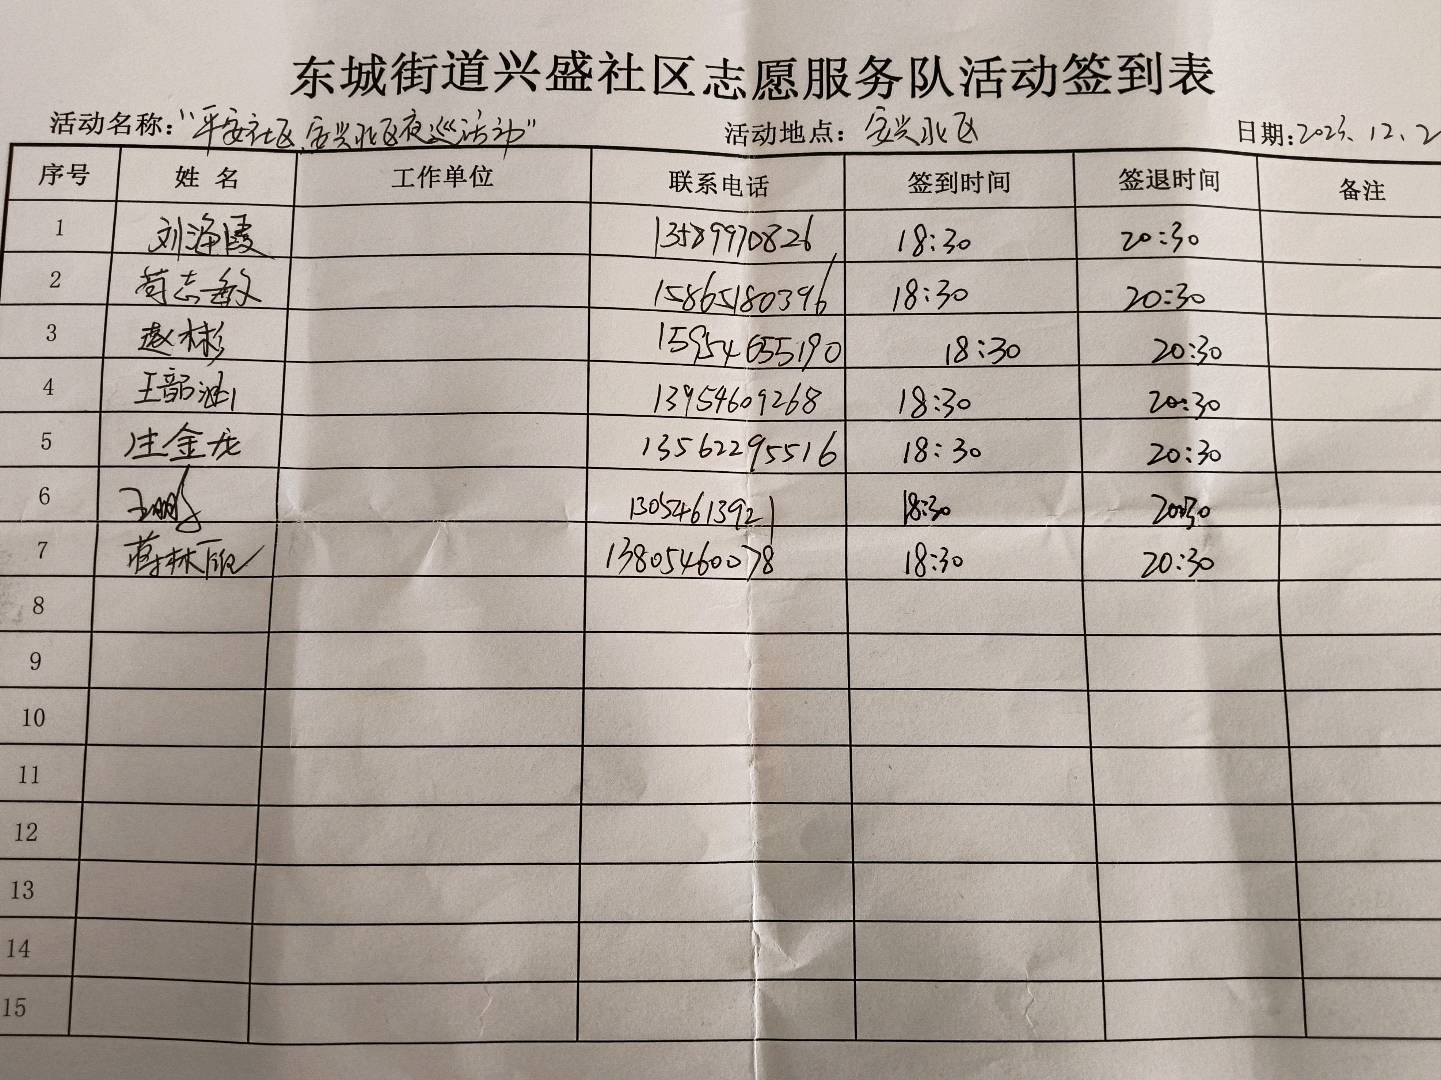 东城街道兴盛社区志愿服务队活动签到表
活动名称：“平安社区，安兴北区夜巡活动” 活动地点：安兴北区 日期：2023.12.2
序号 姓名 工作单位 联系电话 签到时间 签退时间 备注
1 刘海霞 13589970826 18:30 20:30
2 苟志敏 15865180396 18:30 20:30
3 赵彬 15954655190 18:30 20:30
4 王韶 13954609268 18:30 20:30
5 庄金龙 13562295516 18:30 20:30
6 王鹏 13054613921 18:30 20:30
7 蒋林 13805460078 18:30 20:30
8
9
10
11
12
13
14
15